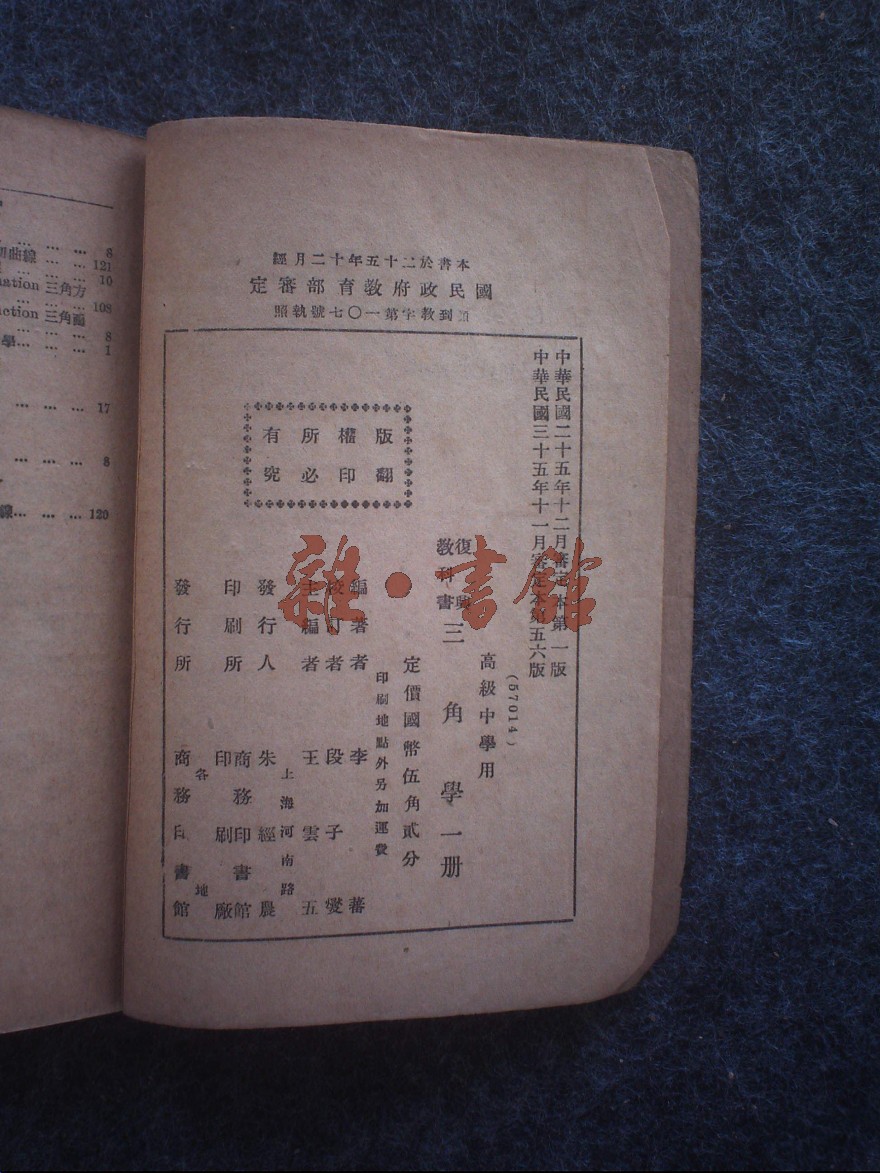 本書於二十五年十二月經
國民政府教育部審定
領到教字第一〇七號執照
中華民國二十五年十二月審定本第一版
中華民國三十五年十一月審定本第五六版
(57014)
高級中學用
復興
教科書
三角學一册
定價國幣伍角貳分
印刷地點外另加運費
版權所有
翻印必究
編著者 李蕃
校訂者 段子燮
主編者 王雲五
上海河南路
發行人 朱經農
印刷所 商務印書館
印刷廠
各地
發行所 商務印書館
雜·書館
8
切曲線 … … … 121
… … … 10
nation 三角方
… … … 108
nction 三角函
… … … 8
學… … … 1
… … … 17
… … … 8
線… … … … 120